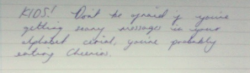 KIDS! Don't be afraid if you're
getting scary messages in your
alphabet cereal, you're probably
eating Cheerios.